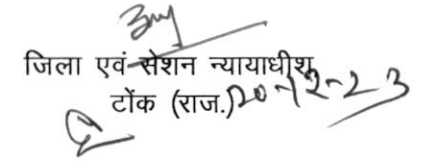 जिला एवं सेशन न्यायाधीश
टोंक (राज.) 20-12-23